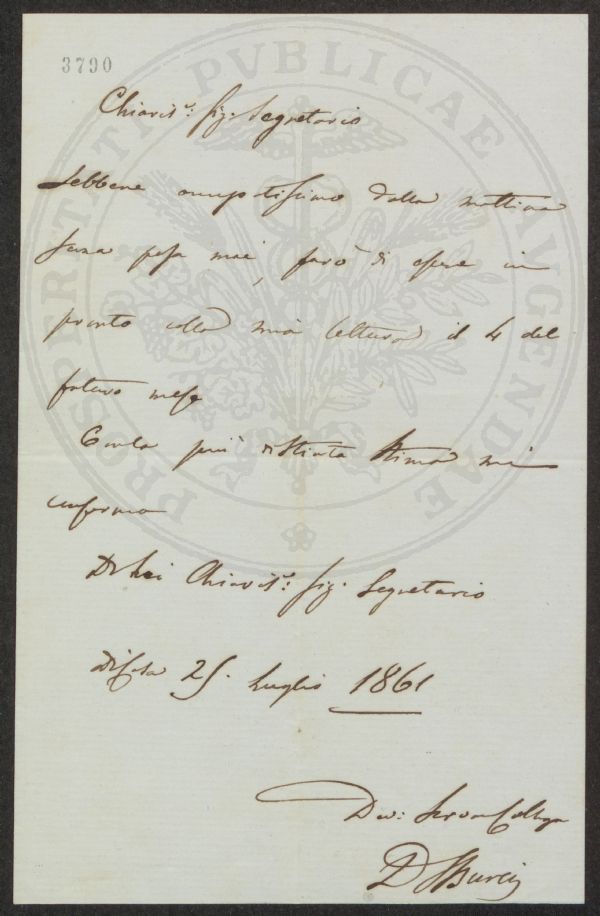 3790
PROSPERITATI PVBLICAE AVGENDAE
Chiaris.º Sig. Segretario
Sebbene occupatissimo dalla mattina
sera posa mai, farò di essere in
pronto colla mia lettura il 4 del
futuro mese
Con la più distinta stima mi
confermo
Di Lei Chiaris.º Sig. Segretario
Di Casa 25. Luglio 1861
Dev: Serv Collega